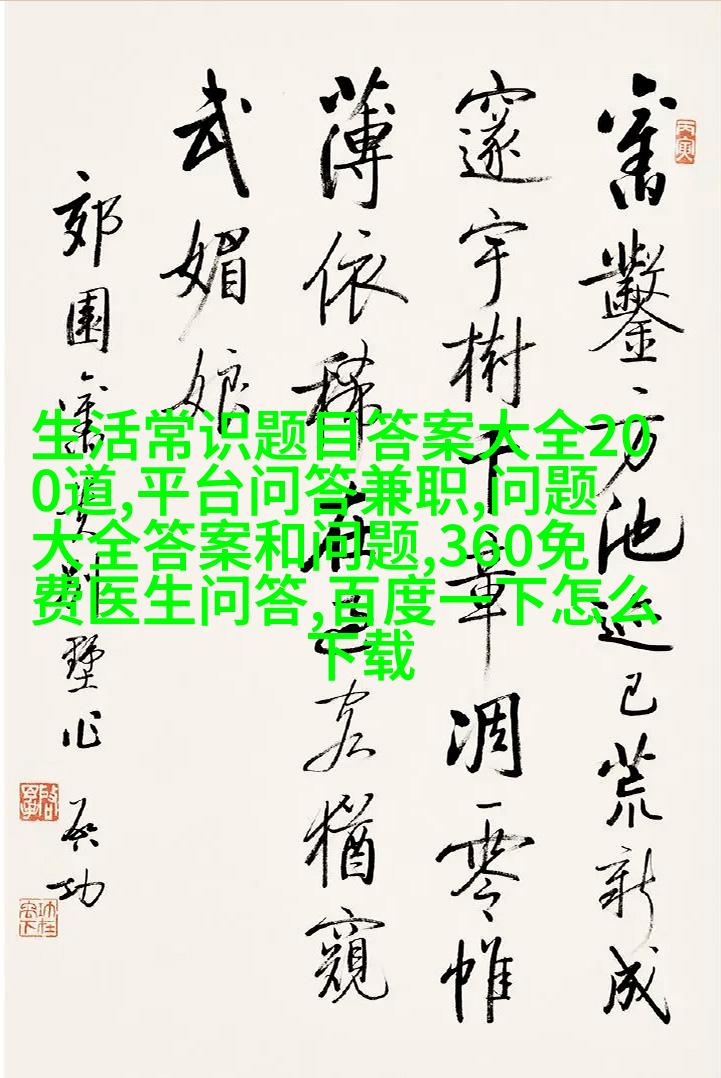 舊鑿方池迹已荒新成
邃宇樹千章凋零帷
薄依稀在是猶窺
武媚娘
郊園舊別墅作 启功
生活常识题目答案大全20
0道,平台问答兼职,问题
大全答案和问题,360免
费医生问答,百度一下怎么
下载